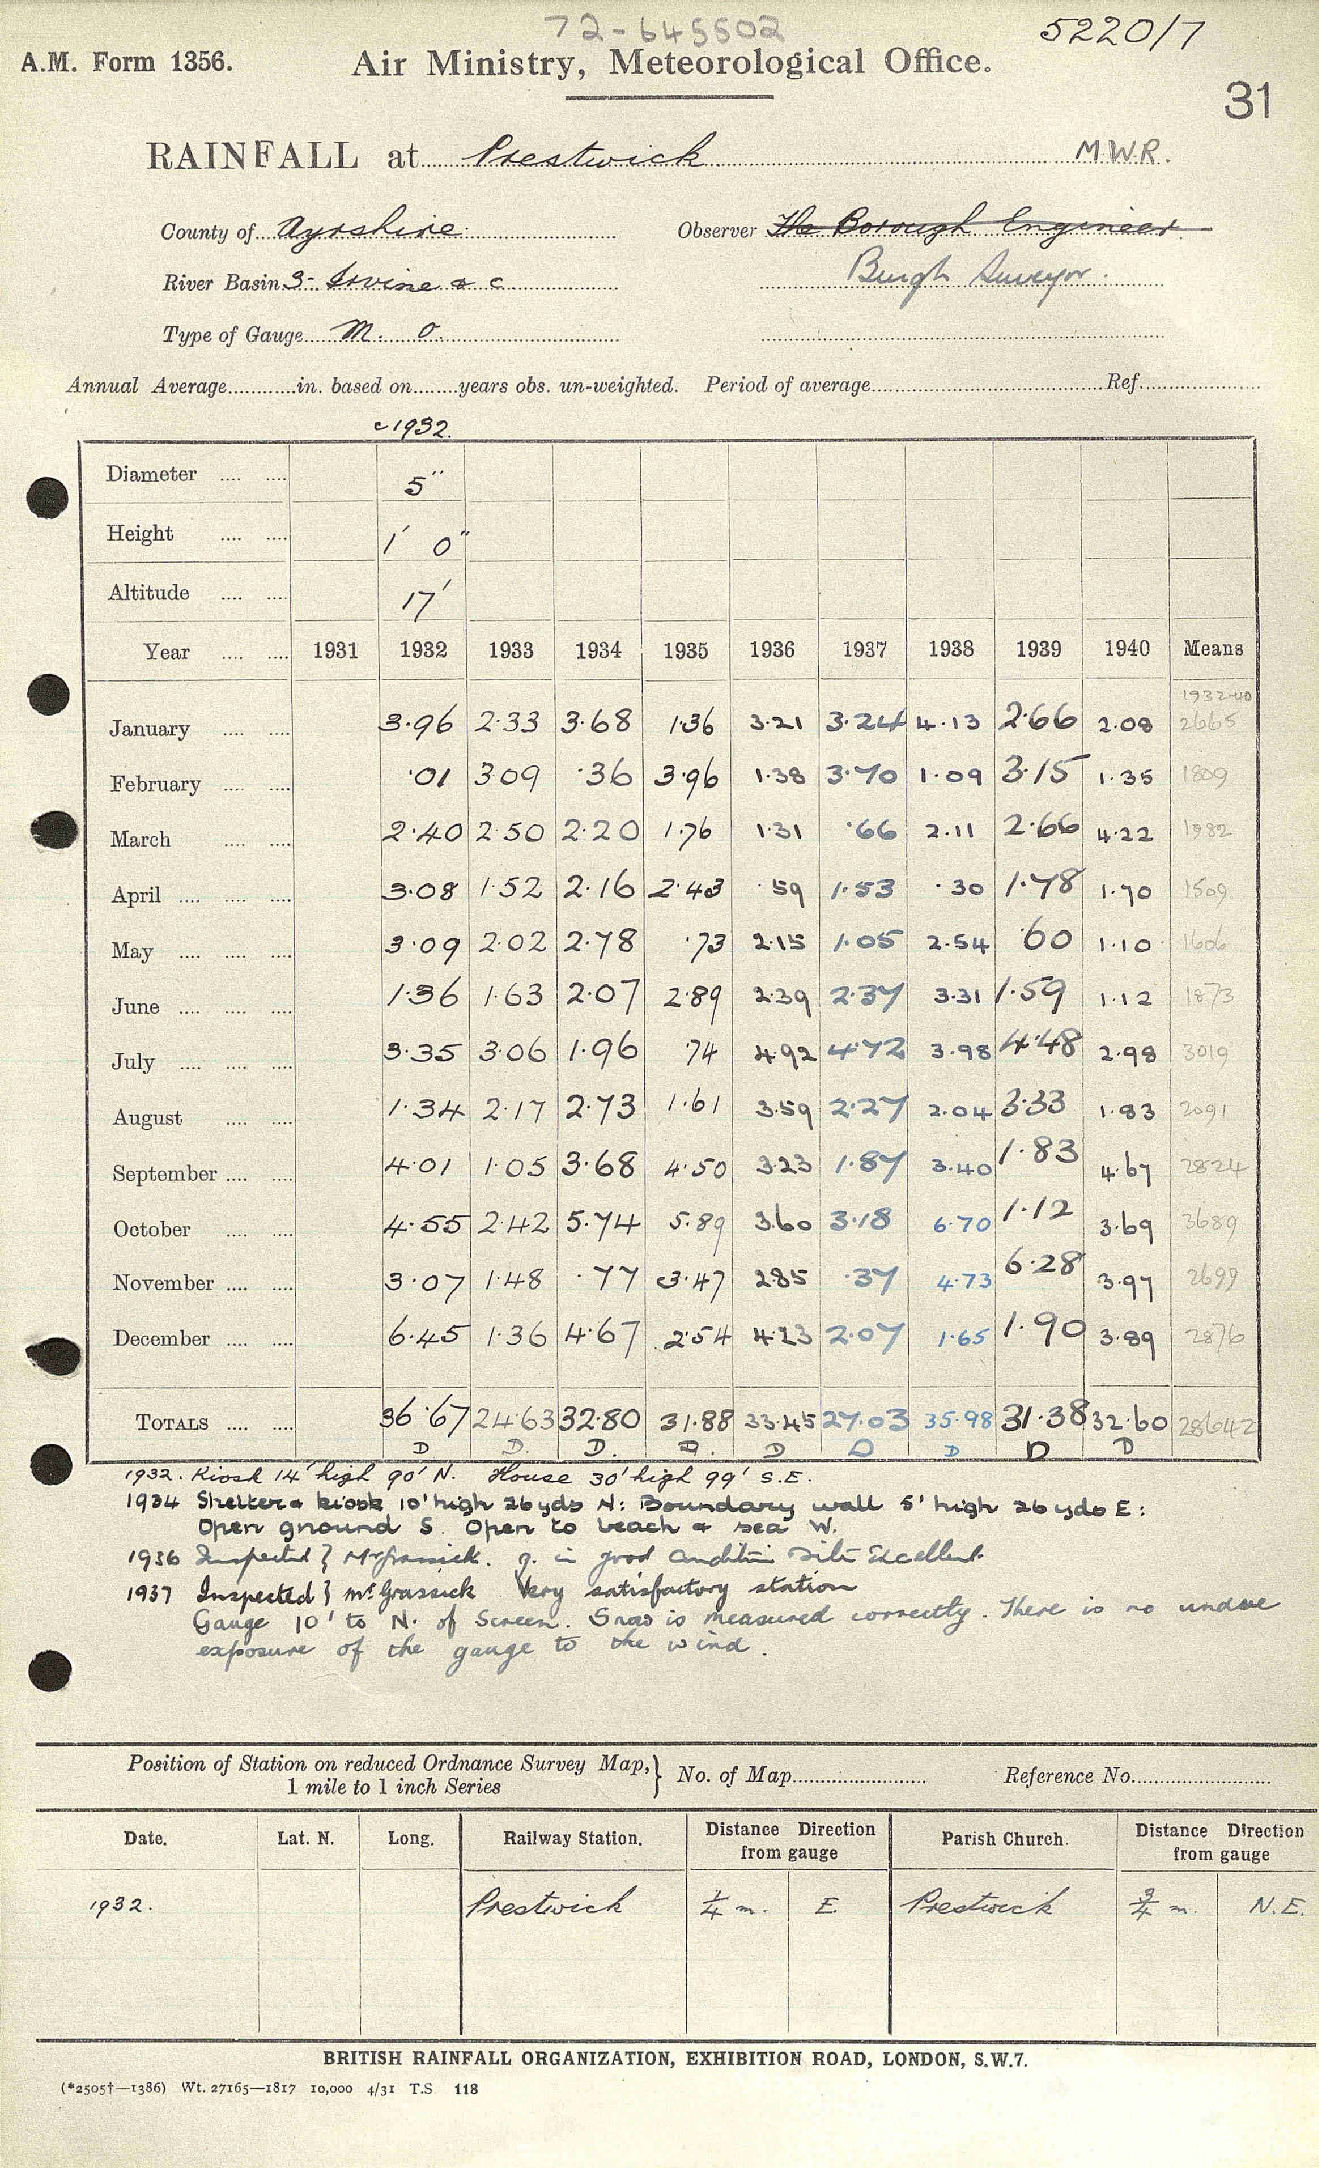 72-645502
5220/7
A.M. Form 1356.
Air Ministry, Meteorological Office.
31
RAINFALL at Prestwick M.W.R.
County of Ayrshire Observer The Borough Engineer
River Basin 3- Irvine & c Burgh Surveyor.
Type of Gauge M. O.
Annual Average in. based on years obs. un-weighted. Period of average Ref.
c1932.
Diameter 5"
Height 1' 0"
Altitude 17'
Year 1931 1932 1933 1934 1935 1936 1937 1938 1939 1940 Means
1932-40
January 3.96 2.33 3.68 1.36 3.21 3.24 4.13 2.66 2.08 2665
February .01 3.09 .36 3.96 1.38 3.70 1.09 3.15 1.35 1809
March 2.40 2.50 2.20 1.76 1.31 .66 2.11 2.66 4.22 1982
April 3.08 1.52 2.16 2.43 .59 1.53 .30 1.78 1.70 1509
May 3.09 2.02 2.78 .73 2.15 1.05 2.54 .60 1.10 1606
June 1.36 1.63 2.07 2.89 2.39 2.37 3.31 1.59 1.12 1873
July 3.35 3.06 1.96 .74 4.92 4.72 3.98 4.48 2.98 3019
August 1.34 2.17 2.73 1.61 3.59 2.27 2.04 3.33 1.83 2091
September 4.01 1.05 3.68 4.50 3.23 1.87 3.40 1.83 4.67 2824
October 4.55 2.42 5.74 5.89 3.60 3.18 6.70 1.12 3.69 3689
November 3.07 1.48 .77 3.47 2.85 .37 4.73 6.28 3.97 2699
December 6.45 1.36 4.67 2.54 4.23 2.07 1.65 1.90 3.89 2876
TOTALS 36.67 24.63 32.80 31.88 33.45 27.03 35.98 31.38 32.60 28642
D D. D. D. D D D D D
1932. Kiosk 14' high 90' N. House 30' high 99' S.E.
1934 Shelter & kiosk 10' high 26 yds N: Boundary wall 5' high 26 yds E:
Open ground S. Open to beach & sea W.
1936 Inspected } Mr Grassick. g. in good condition Site Excellent
1937 Inspected } Mr. Grassick Very satisfactory station
Gauge 10' to N. of Screen. Snow is measured correctly. There is no undue
exposure of the gauge to the wind.
Position of Station on reduced Ordnance Survey Map, } No. of Map Reference No.
1 mile to 1 inch Series
Date. Lat. N. Long. Railway Station. Distance Direction from gauge Parish Church. Distance Direction from gauge
1932. Prestwick 1/4 m. E. Prestwick 3/4 m N.E.
BRITISH RAINFALL ORGANIZATION, EXHIBITION ROAD, LONDON, S.W.7.
(*2505†—1386) Wt. 27165—1817 10,000 4/31 T.S 118